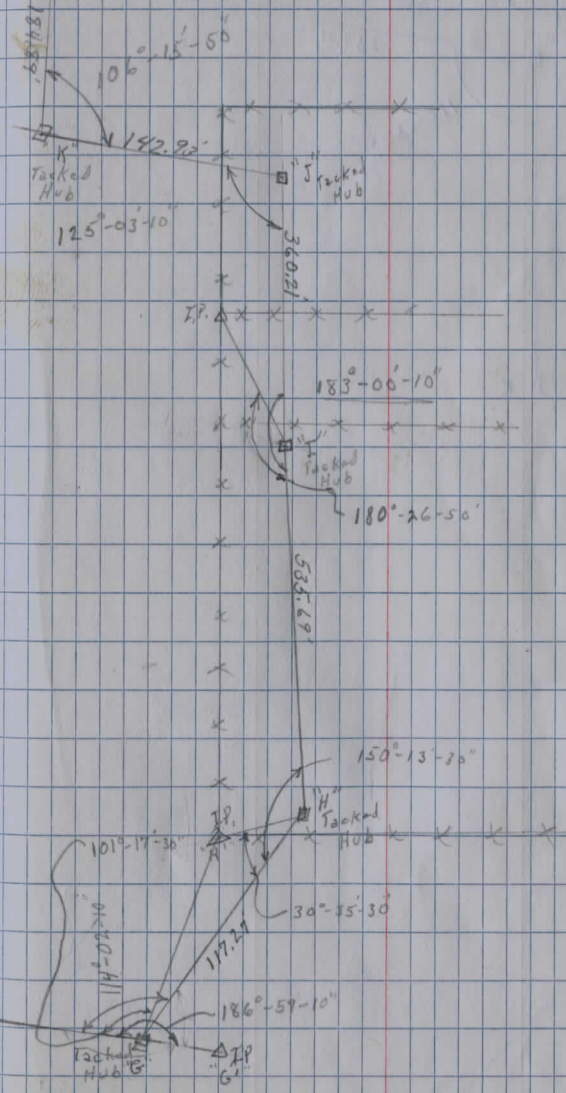 184.59'
106°-15'-50"
142.93'
"K"
Tacked
Hub
"J"
Tacked
Hub
125°-03'-10"
360.21'
I.P.
183°-00'-10"
"I"
Tacked
Hub
180°-26'-50"
535.69'
150°-13'-30"
"H"
Tacked
Hub
I.P.
"A"
101°-17'-30"
30°-35'-30"
114°-02'-10"
117.27'
186°-59'-10"
Tacked
Hub "G"
I.P.
"G'"